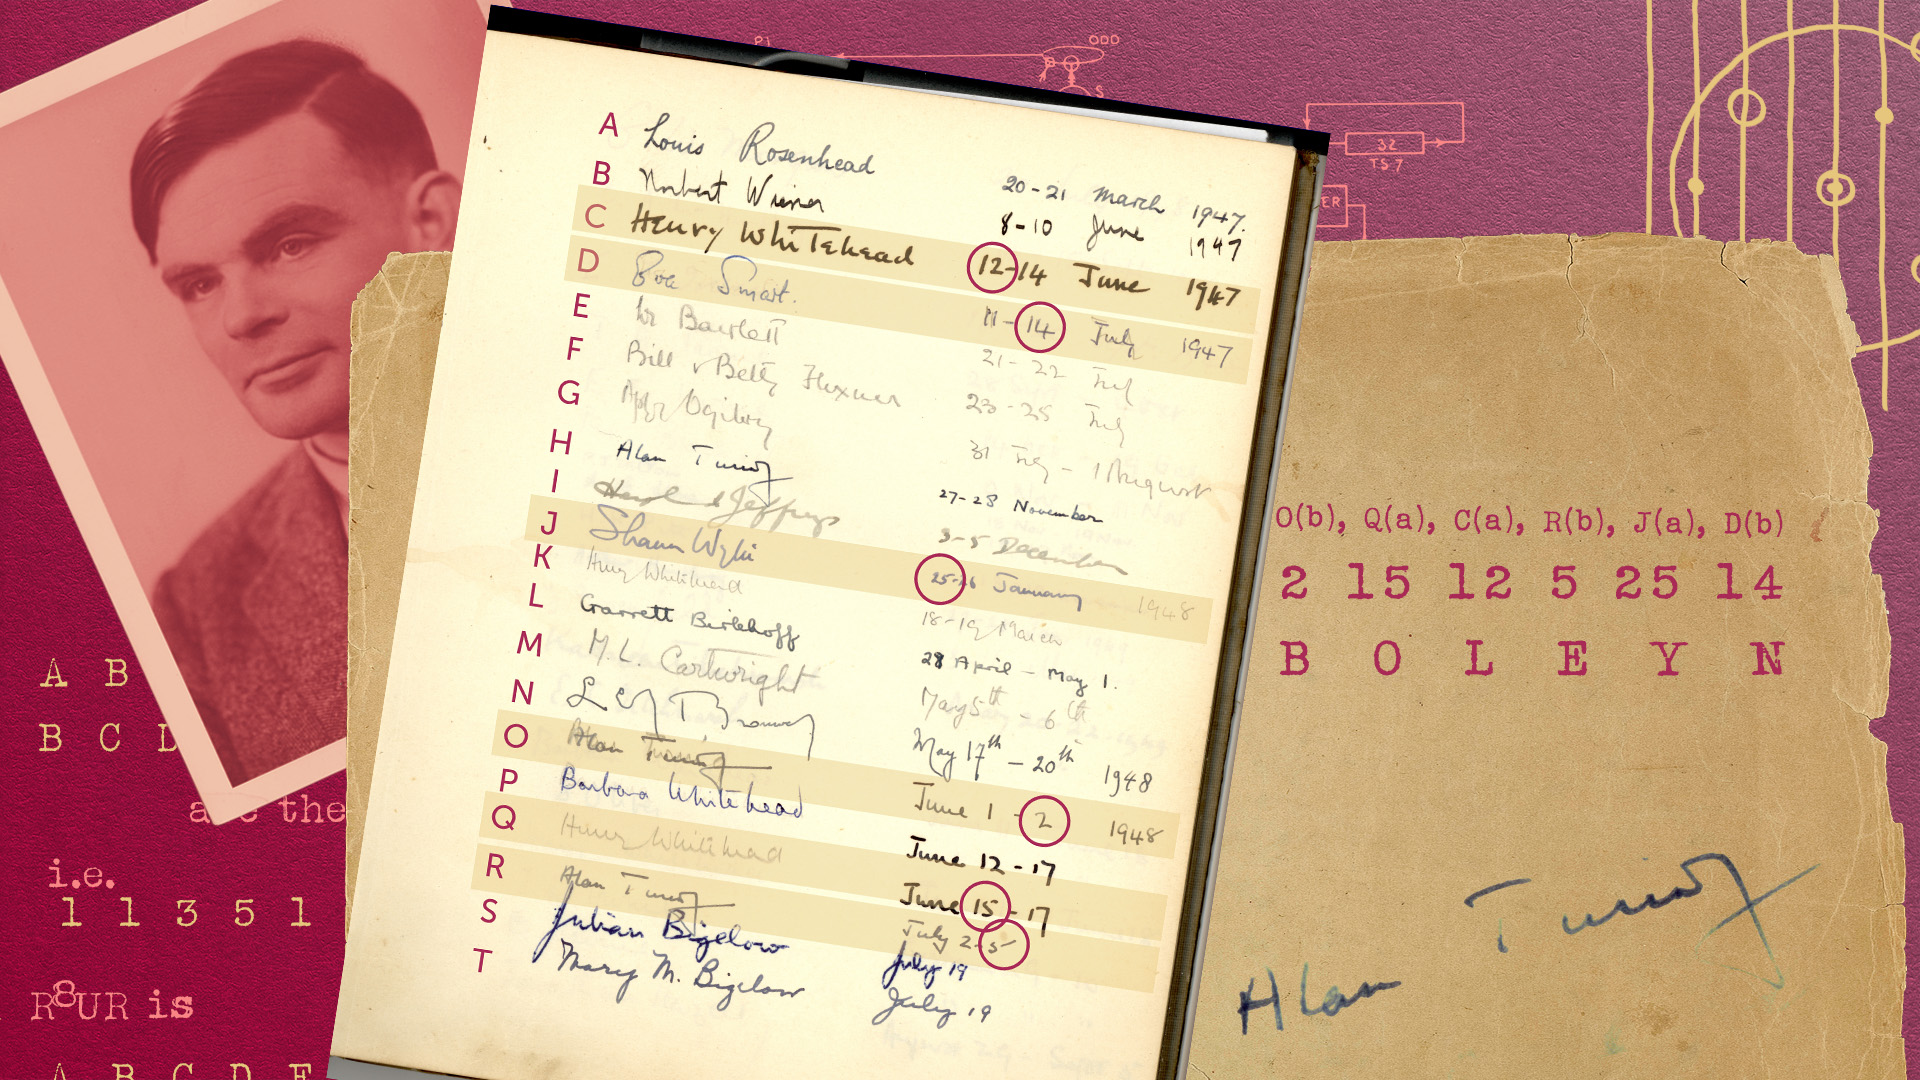 P1
ODD
S
32
TS 7
ER
A Louis Rosenhead 20-21 March 1947.
B Norbert Wiener 8-10 June 1947
C Henry Whitehead 12-14 June 1947
D Smart. 11-14 July 1947
E Bartlett 21-22 July
F Bill & Betty Flexner 23-25 July
G Ogilvy 31 July - 1 August
H Alan Turing 27-28 November
I & Jeffreys 3-5 December
J Shaun Wylie 25-26 January 1948
K Henry Whitehead 18-19 March
L Garrett Birkhoff 28 April - May 1.
M M. L. Cartwright May 5th - 6th
N May 17th - 20th 1948
O Alan Turing June 1 - 2 1948
P Barbara Whitehead June 12-17
Q Henry Whitehead June 15-17
R Alan Turing July 2-5
S Julian Bigelow July 19
T Mary M. Bigelow July 19
O(b), Q(a), C(a), R(b), J(a), D(b)
2 15 12 5 25 14
B O L E Y N
Alan Turing
A B
B C D
are the
i.e.
1 1 3 5 1
R8UR is
A B C D E